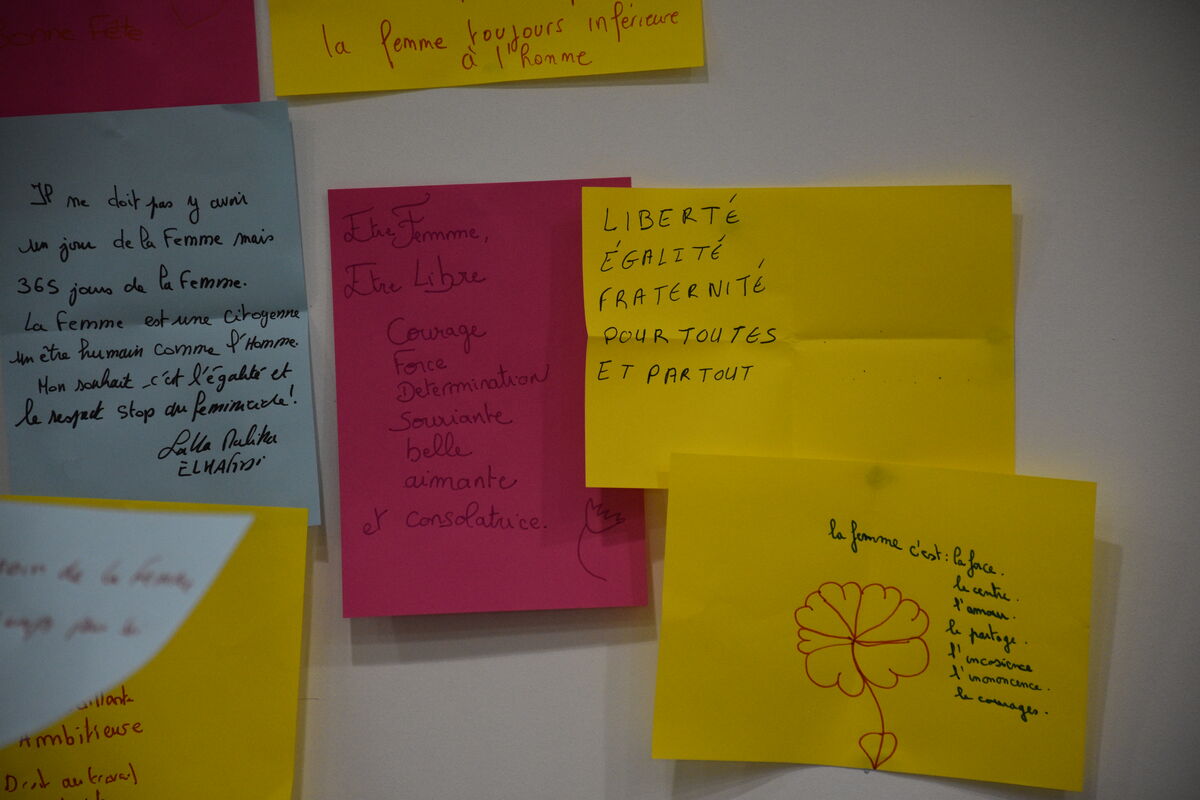 Bonne Fête
la femme toujours inférieure
à l'homme
Il ne doit pas y avoir
un jour de la Femme mais
365 jours de la Femme.
La Femme est une citoyenne
un être humain comme l'Homme.
Mon souhait c'est l'égalité et
le respect Stop au feminicide!
Lalla Malika
Etre Femme,
Etre Libre
Courage
Force
Determination
Souriante
belle
aimante
et consolatrice.
LIBERTÉ
ÉGALITÉ
FRATERNITÉ
POUR TOUTES
ET PARTOUT
la femme c'est: la force.
le centre.
l'amour.
le partage.
l'incosience
l'inononcence.
le courages.
de la Femme,
Ambitieuse
Droit au travail